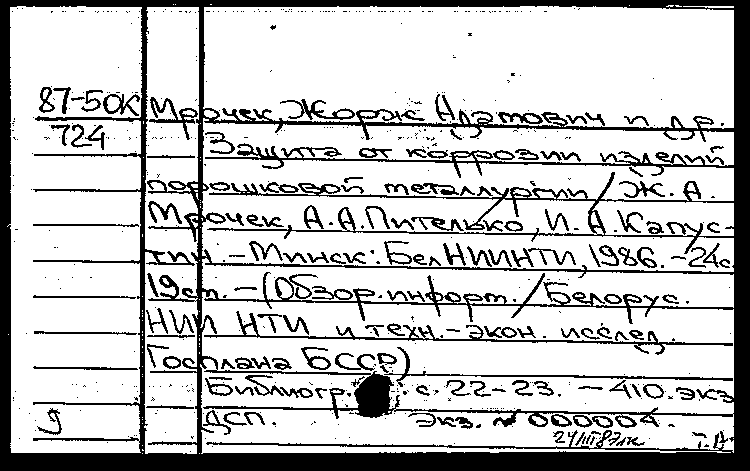 87-50К Мрочек, Жорж Адамович и др.
724 Защита от коррозии изделий
порошковой металлургии / Ж. А.
Мрочек, А. А. Пителько, И. А. Капус-
тин. - Минск: БелНИИНТИ, 1986. - 24 с.
19 см. - (Обзор. информ. / Белорус.
НИИ НТИ и техн.-экон. исслед.
Госплана БССР)
Библиогр. с. 22-23. - 410. экз
ДСП. Экз. № 000004.